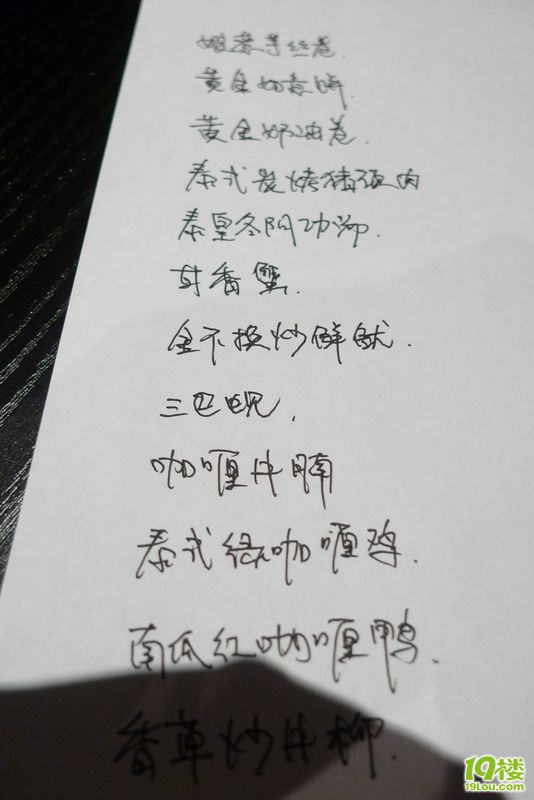 黄金奶油卷.
泰式炭烤猪颈肉
泰皇冬阴功汤.
香蟹.
金不换炒鲜鱿.
三巴蚬.
咖喱牛腩
泰式绿咖喱鸡.
南瓜红咖喱鸭.
香草炒牛柳.
19楼
19lou.com